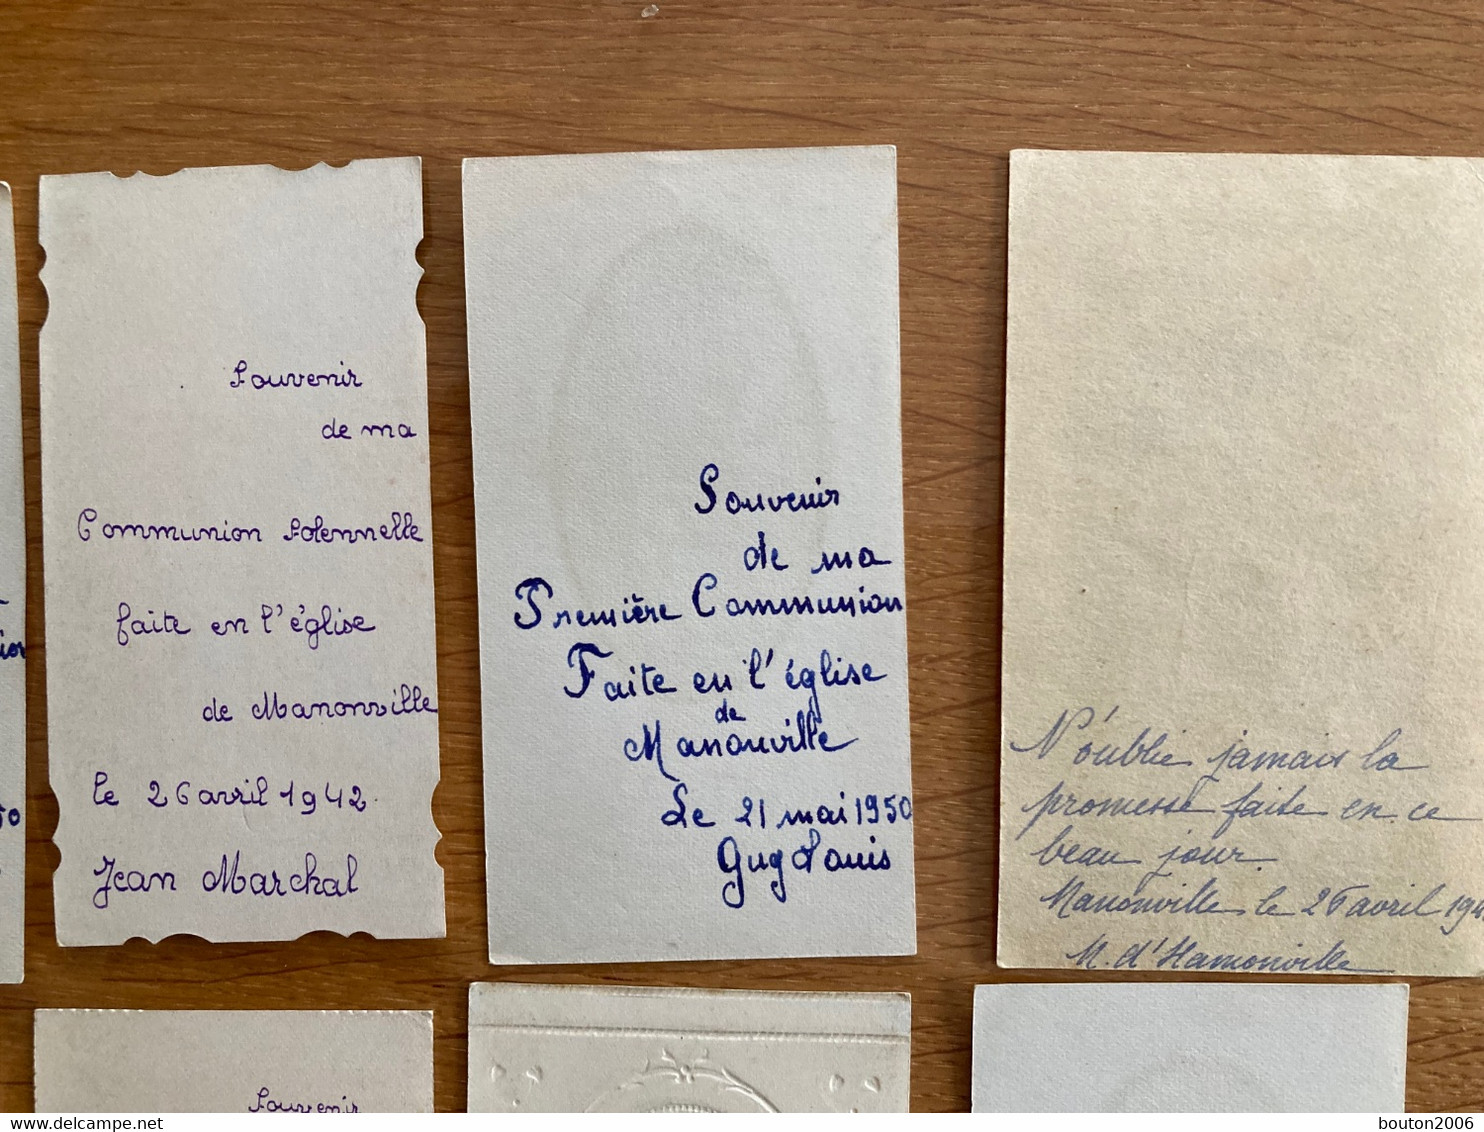 Souvenir
de ma
Communion solennelle
faite en l'église
de Manonville
le 26 avril 1942.
Jean Marchal
Souvenir
de ma
Première Communion
Faite en l'église
de
Manonville
Le 21 mai 1950
Guy Louis
N'oublie jamais la
promesse faite en ce
beau jour
Manonville le 26 avril
M. d'Hamonville
Souvenir
delcampe.net
bouton2006